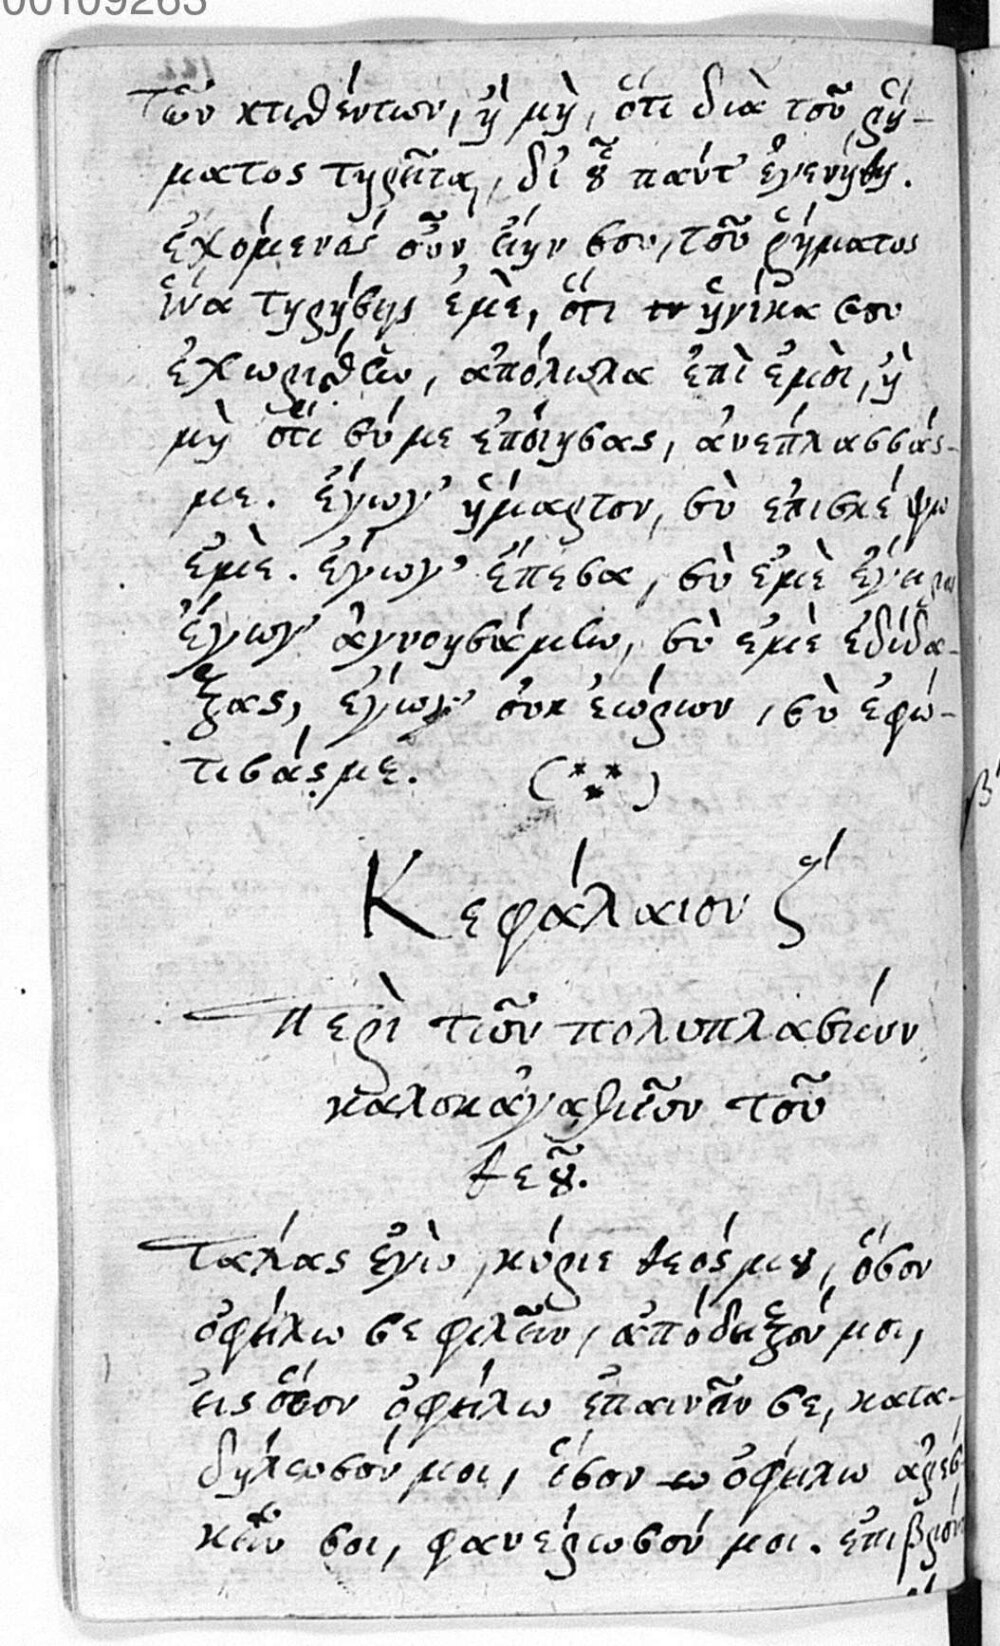 00109263
τῶν κτιθέντων, ἢ μὴ, ὅτι διὰ τοῦ ῥή-
ματος τηρεῖται, δι' οὗ πάντ' ἐγενήθη.
ἐχόμενός οὖν εἴην σου, τοῦ ῥήματος
ἵνα τηρήσῃς ἐμὲ, ὅτι ἡνίκα σου
ἐχωρίσθην, ἀπόλωλα ἐπὶ ἐμοὶ, ἢ
μὴ ὅτι σύ με ἐποίησας, ἀνεπλασσάς
με. ἔγωγ' ἥμαρτον, σὺ ἐπισκέψω
ἐμὲ. ἔγωγ' ἔπεσα, σὺ ἐμὲ
ἔγωγ' ἀγνοησάμην, σὺ ἐμὲ ἐδίδα-
ξας, ἔγωγ' οὐκ ἑώρων, σὺ ἐφώ-
τισάς με. (***)
Κεφάλαιον ζ'
Περὶ τῶν πολυπλασίων
καλοκἀγαθιῶν τοῦ
θεοῦ.
Τάλας ἐγὼ, κύριε θεός μου, ὅσον
ὀφείλω σε φιλεῖν, ἀπόδειξόν μοι,
εἰς ὅσον ὀφείλω ἐπαινεῖν σε, κατα-
δήλωσόν μοι, ὅσον ὀφείλω ἀρέσ
κειν σοι, φανέρωσόν μοι.